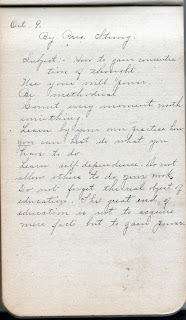 Oct. 9.
By Pres. Strong.
Subject:- How to gain concentra
tion of thought
Use your will power.
Be methodical
Commit every moment with
something.
Learn by your own practice how
you can best do what you
have to do
Learn self dependence. Do not
allow others to do your work
Do not forget the real object of
education. The great end of
education is not to acquire
mere facts but to gain power